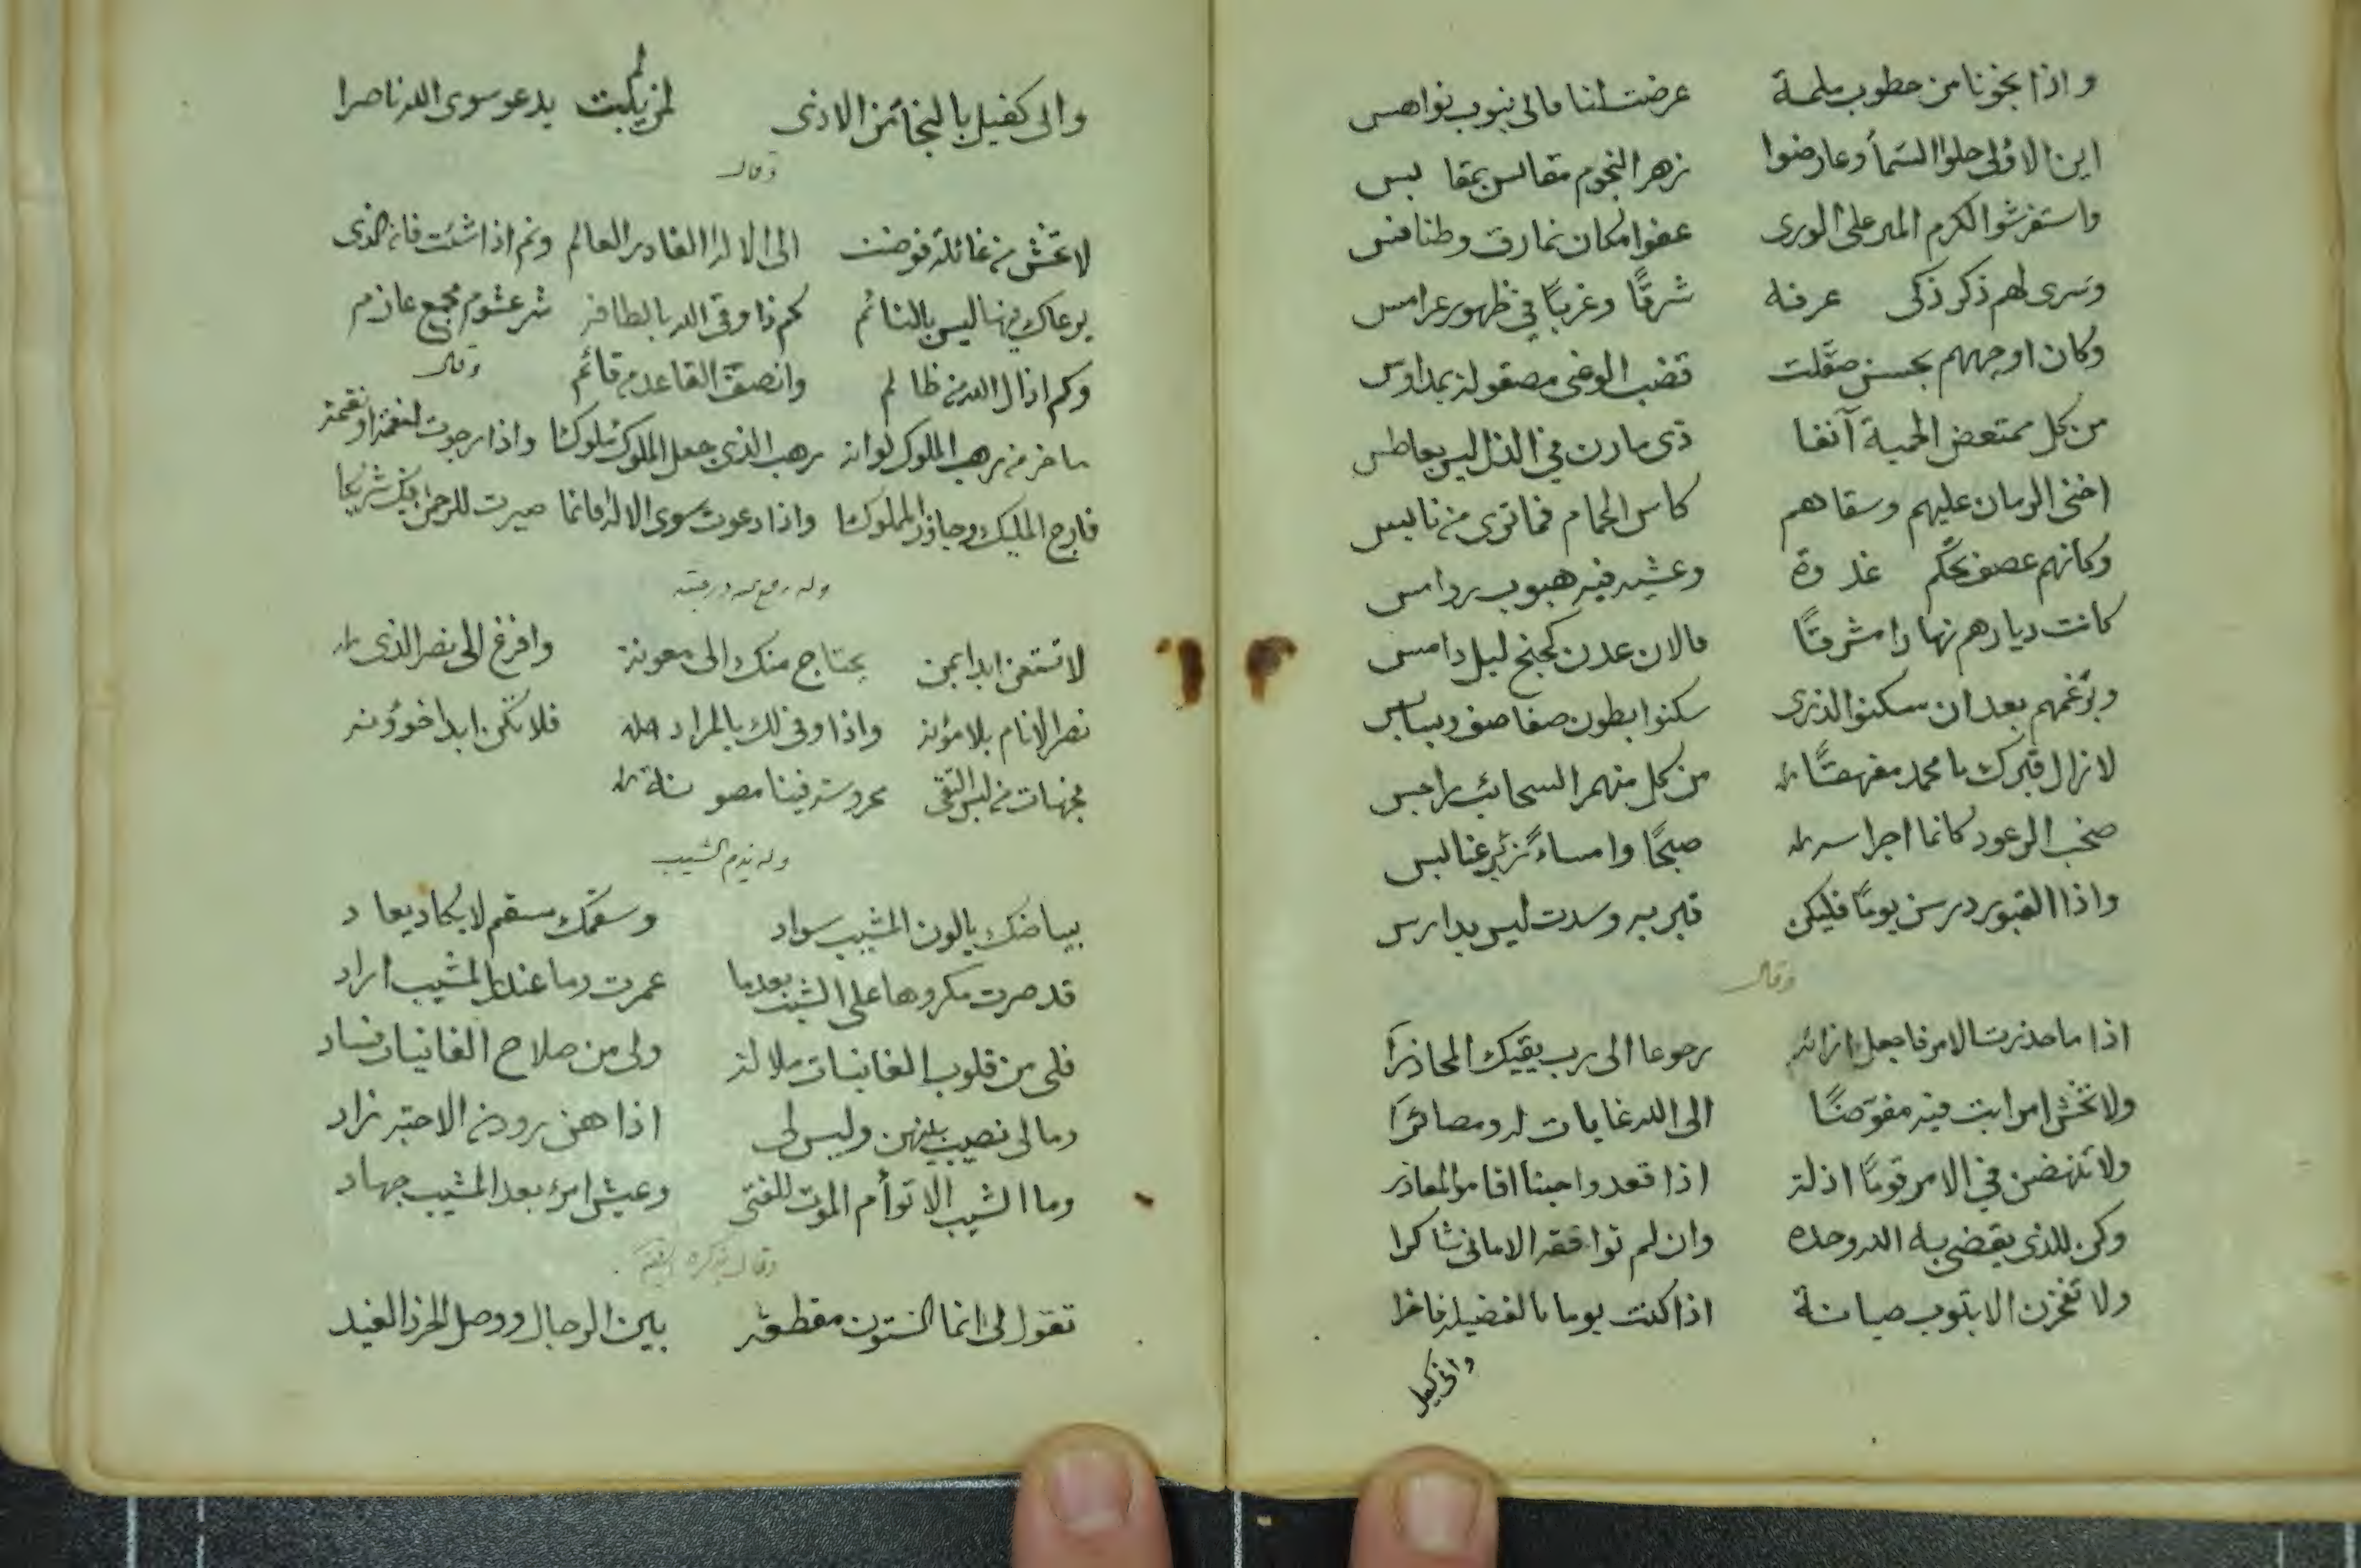 واذا نجونا من خطوب ملمة عرضت لنا مالى نيوب نواهس
اين الاولى حلوا السمأ وعارضوا زهر النجوم مقابس بمقابس
واستفرشوا الكرم المبر على الورى عفوا مكان نمارق وطنافس
وسرى لهم ذكر ذكى عرفه شرقًا وغربًا فى ظهور عرامس
وكان اوجههم بحسن صقلت قضب الوغى مصقولة بمداوس
من كل ممتعض الحمية آنفا ذى مارن فى الذل ليس بعاطس
اخنى الزمان عليهم وسقاهم كاس الحمام فما ترى من نابس
وكانهم عصف تحكم غدوة وعشيه فيه هبوب روامس
كانت ديارهم نهارا مشرقًا فالان عدن كجنح ليل دامس
وبزعمهم بعد ان سكنوا الذرى سكنوا بطون صفاصف وبسابس
لا زال قبرك يا محمد مفهقًا من كل منهمر السحائب راجس
صخب الرعود كانما اجراسه صبحًا وامساءً زئير عنابس
واذا القبور درسن يومًا فليكن قبر به وسدت ليس بدارس
وقال
اذا ما حذرت الامر فاجعل ازائه رجوعا الى رب يقيك المحاذرا
ولا تخش امرا بت فيه مفوضًا الى الله غايات له ومصائرا
ولا تنهضن فى الامر قومًا اذلة اذا قعدوا جبنا اقاموا المعاذر
وكن للذى يقضى به الله وحده وان لم توافقه الامانى شاكرا
ولا تفخرن الا بثوب صيانة اذا كنت يوما بالفضيلة فاخرا
وانى كفيل
وانى كفيل بالنجا من الاذى لمن لم يبت يدعو سوى الله ناصرا
وقال
لا تخش من غائلة فوضت الى الاله القادر العالم ونم اذا شئت فانه الذى
يرعاك فيها ليس بالنائم كم ذا وقى الله بالطافه شر غشوم مجمع عازم
وكم اذال الله من ظالم وانصف القاعد من قائم وقال
ما ضر من رهب الملوك لو انه رهب الذى جعل الملوك ملوكا واذا رجوت لنعمة او نقمة
فارج المليك وجاوز المملوكا واذا دعوت سوى الاله فانما صيرت للرحمن فيك شريكا
لا تستعن ابدا بمن يحتاج منك الى معونة وافزع الى نصر الذى
نصر الانام بلا مؤنة واذا وفى لك بالمراد فلا تكن ابدا خوؤنه
فجهات من لبس التقى محروسة فينا مصونة
وله يذم الشيب
بياضك يا لون المشيب سواد وسقمك سقم لا يكاد يعاد
قد صرت مكروها على الشيب بعدما عمرت وما عند المشيب اراد
فلى من قلوب الغانيات ملالة ولى من صلاح الغانيات فساد
وما لى نصيب بينهن وليس لى اذا هن زودن الاحبة زاد
وما الشيب الا توأم الموت للفتى وعيش امرء بعد المشيب جهاد
تقول لى انما الستون مقطعة بين الرجال ووصل الخرد الغيد